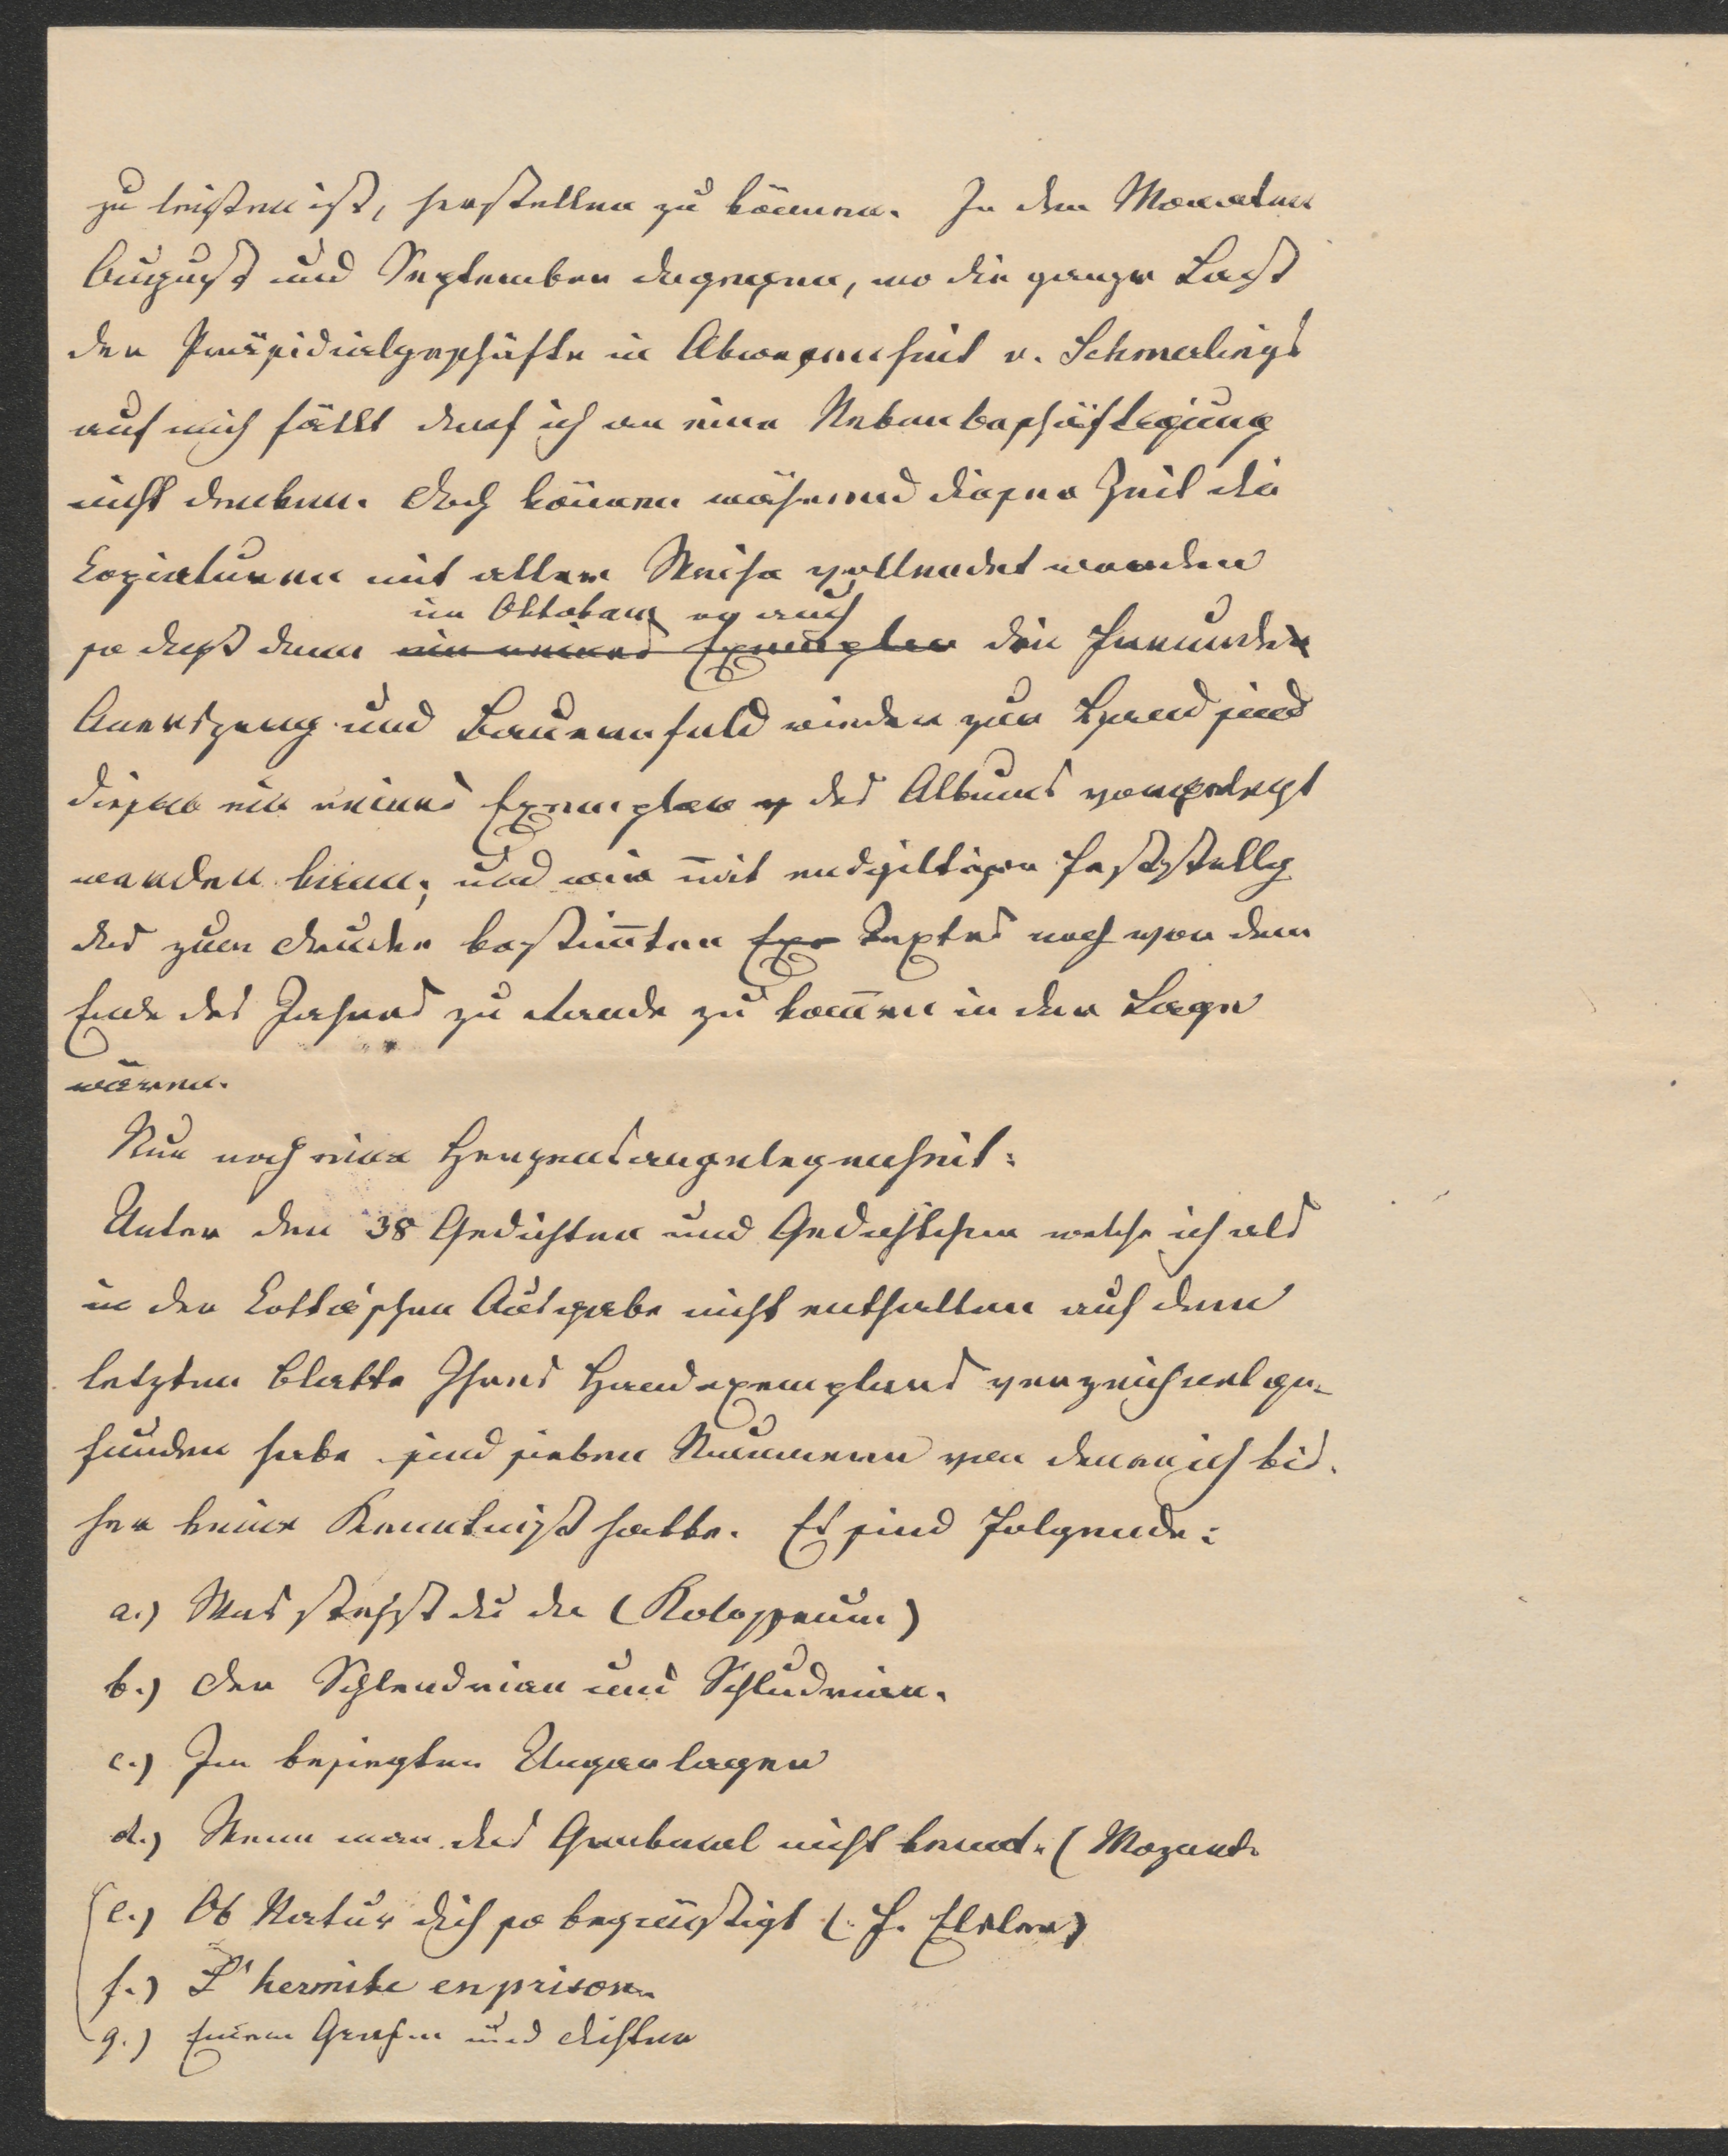 zu leisten ist, herstellen zu können. In den Monaten
August und September dagegen, wo die ganze Last
der Präsidialgeschäfte in Abwesenheit v. Schmerlings
auf mich fällt darf ich an eine Nebenbeschäftigung
nicht denken. Doch können während dieser Zeit die
Copiaturen mit aller Weise vollendet werden
im Oktober, wo auch
so daß dann ein reines Exemplar die Freunde
Auersperg und Bauernfeld wieder zur Hand sind
diesen ein reines Exemplar des Albums vorgelegt
werden kann, und wir mit endgiltiger Feststellg
des zum Drucke bestim̄ten Exe Textes noch vor dem
Ende des Jahres zu Rande zu kom̄en in der Lage
wären.
Nun noch eine Herzensangelegenheit:
Unter den 38 Gedichten und Gedichtchen welche ich als
in der Cotta'schen Ausgabe nicht enthalten auf dem
letzten Blatte Ihres Handexemplares verzeichnet ge-
funden habe sind sieben Nummern von denen ich bis-
her keine Kenntniß hatte. Es sind folgende:
a.) Was stehst du da (Kolosseum)
b.) Der Schlendrian und Schludrian.
c.) Im besiegten Ungarlager
d.) Wenn man das Grabmal nicht kennt. (Mozart.
e.) Ob Natur dich so begünstigt (: F. Elsler)
f.) L'hermite en prison.
g.) Einem Grafen und Dichter